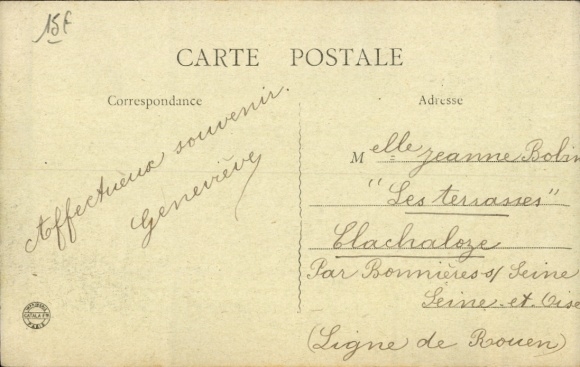 15f
CARTE POSTALE
Correspondance
Adresse
Affectueux souvenir.
Geneviève
Melle Jeanne Bobin
"Les terrasses"
Clachaloze
Par Bonnières s/ Seine
Seine-et-Oise
(Ligne de Rouen)
PARIS